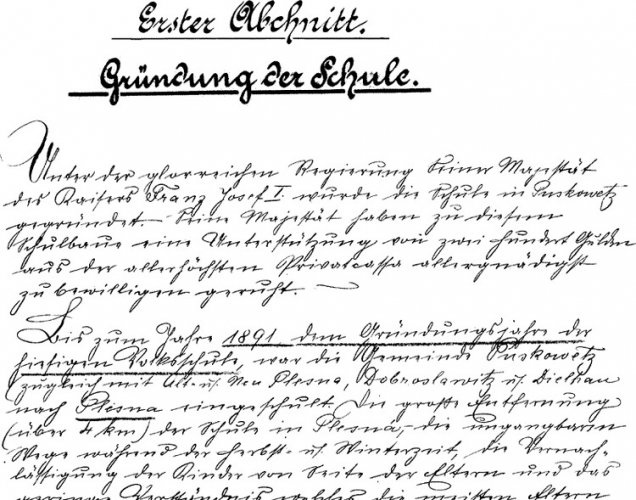 Erster Abschnitt.
Gründung der Schule.
Unter der glorreichen Regierung Seiner Majestät
des Kaisers Franz Josef I. wurde die Schule in Puskowetz
gegründet. – Seine Majestät haben zu diesem
Schulbaue eine Unterstützung von zwei hundert Gulden
aus der allerhöchsten Privatcassa allergnädigst
zu bewilligen geruht. —
Bis zum Jahre 1891, dem Gründungsjahre der
hiesigen Volksschule, war die Gemeinde Puskowetz
zugleich mit Alt- u. Neu Plesna, Dobroslawitz u. Dielhau
nach Plesna eingeschult. Die große Entfernung
(über 4 km) der Schule in Plesna,- die ungangbaren
Wege während der Herbst- u. Winterzeit, die Vernach-
lässigung der Kinder von Seite der Eltern und das
geringe Verständnis welches die meisten Eltern